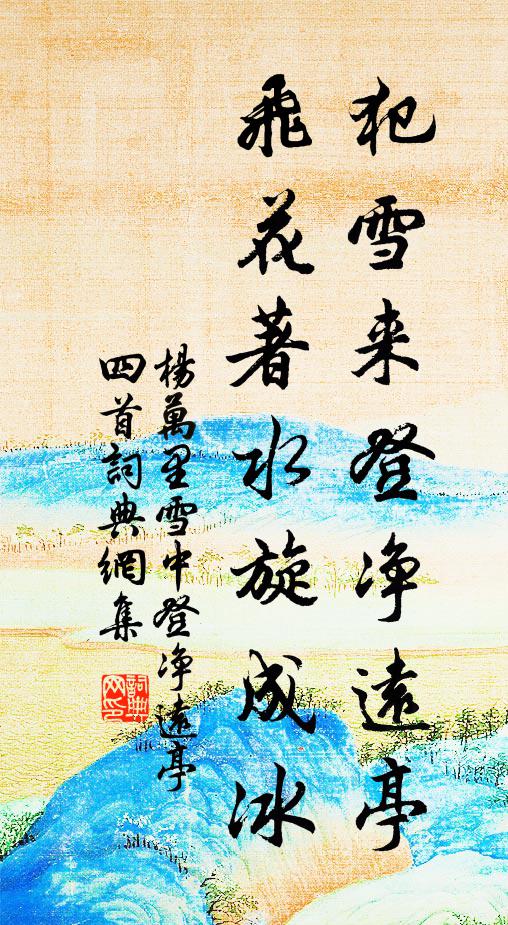 犯雪来登净遠亭
飛花著水旋成冰
楊萬里雪中登净遠亭
四首詞典網集
詞典
网印